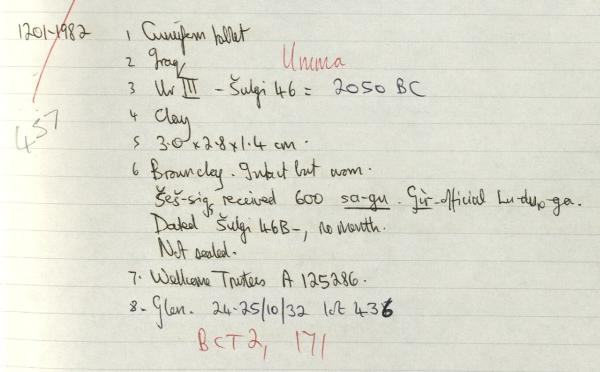 1201-1982 1 Cuneiform tablet
2 Iraq Umma
3 Ur III - Šulgi 46 = 2050 BC
4 Clay
457
5 3.0 x 2.8 x 1.4 cm.
6 Brown clay. Intact but worn.
Šeš-sig₅ received 600 sa-gu. Gìr-official Lu-du₁₀-ga.
Dated Šulgi 46B-, no month.
Not sealed.
7. Wellcome Trustees A 125286.
8. Glen. 24-25/10/32 lot 436
BCT2, 171